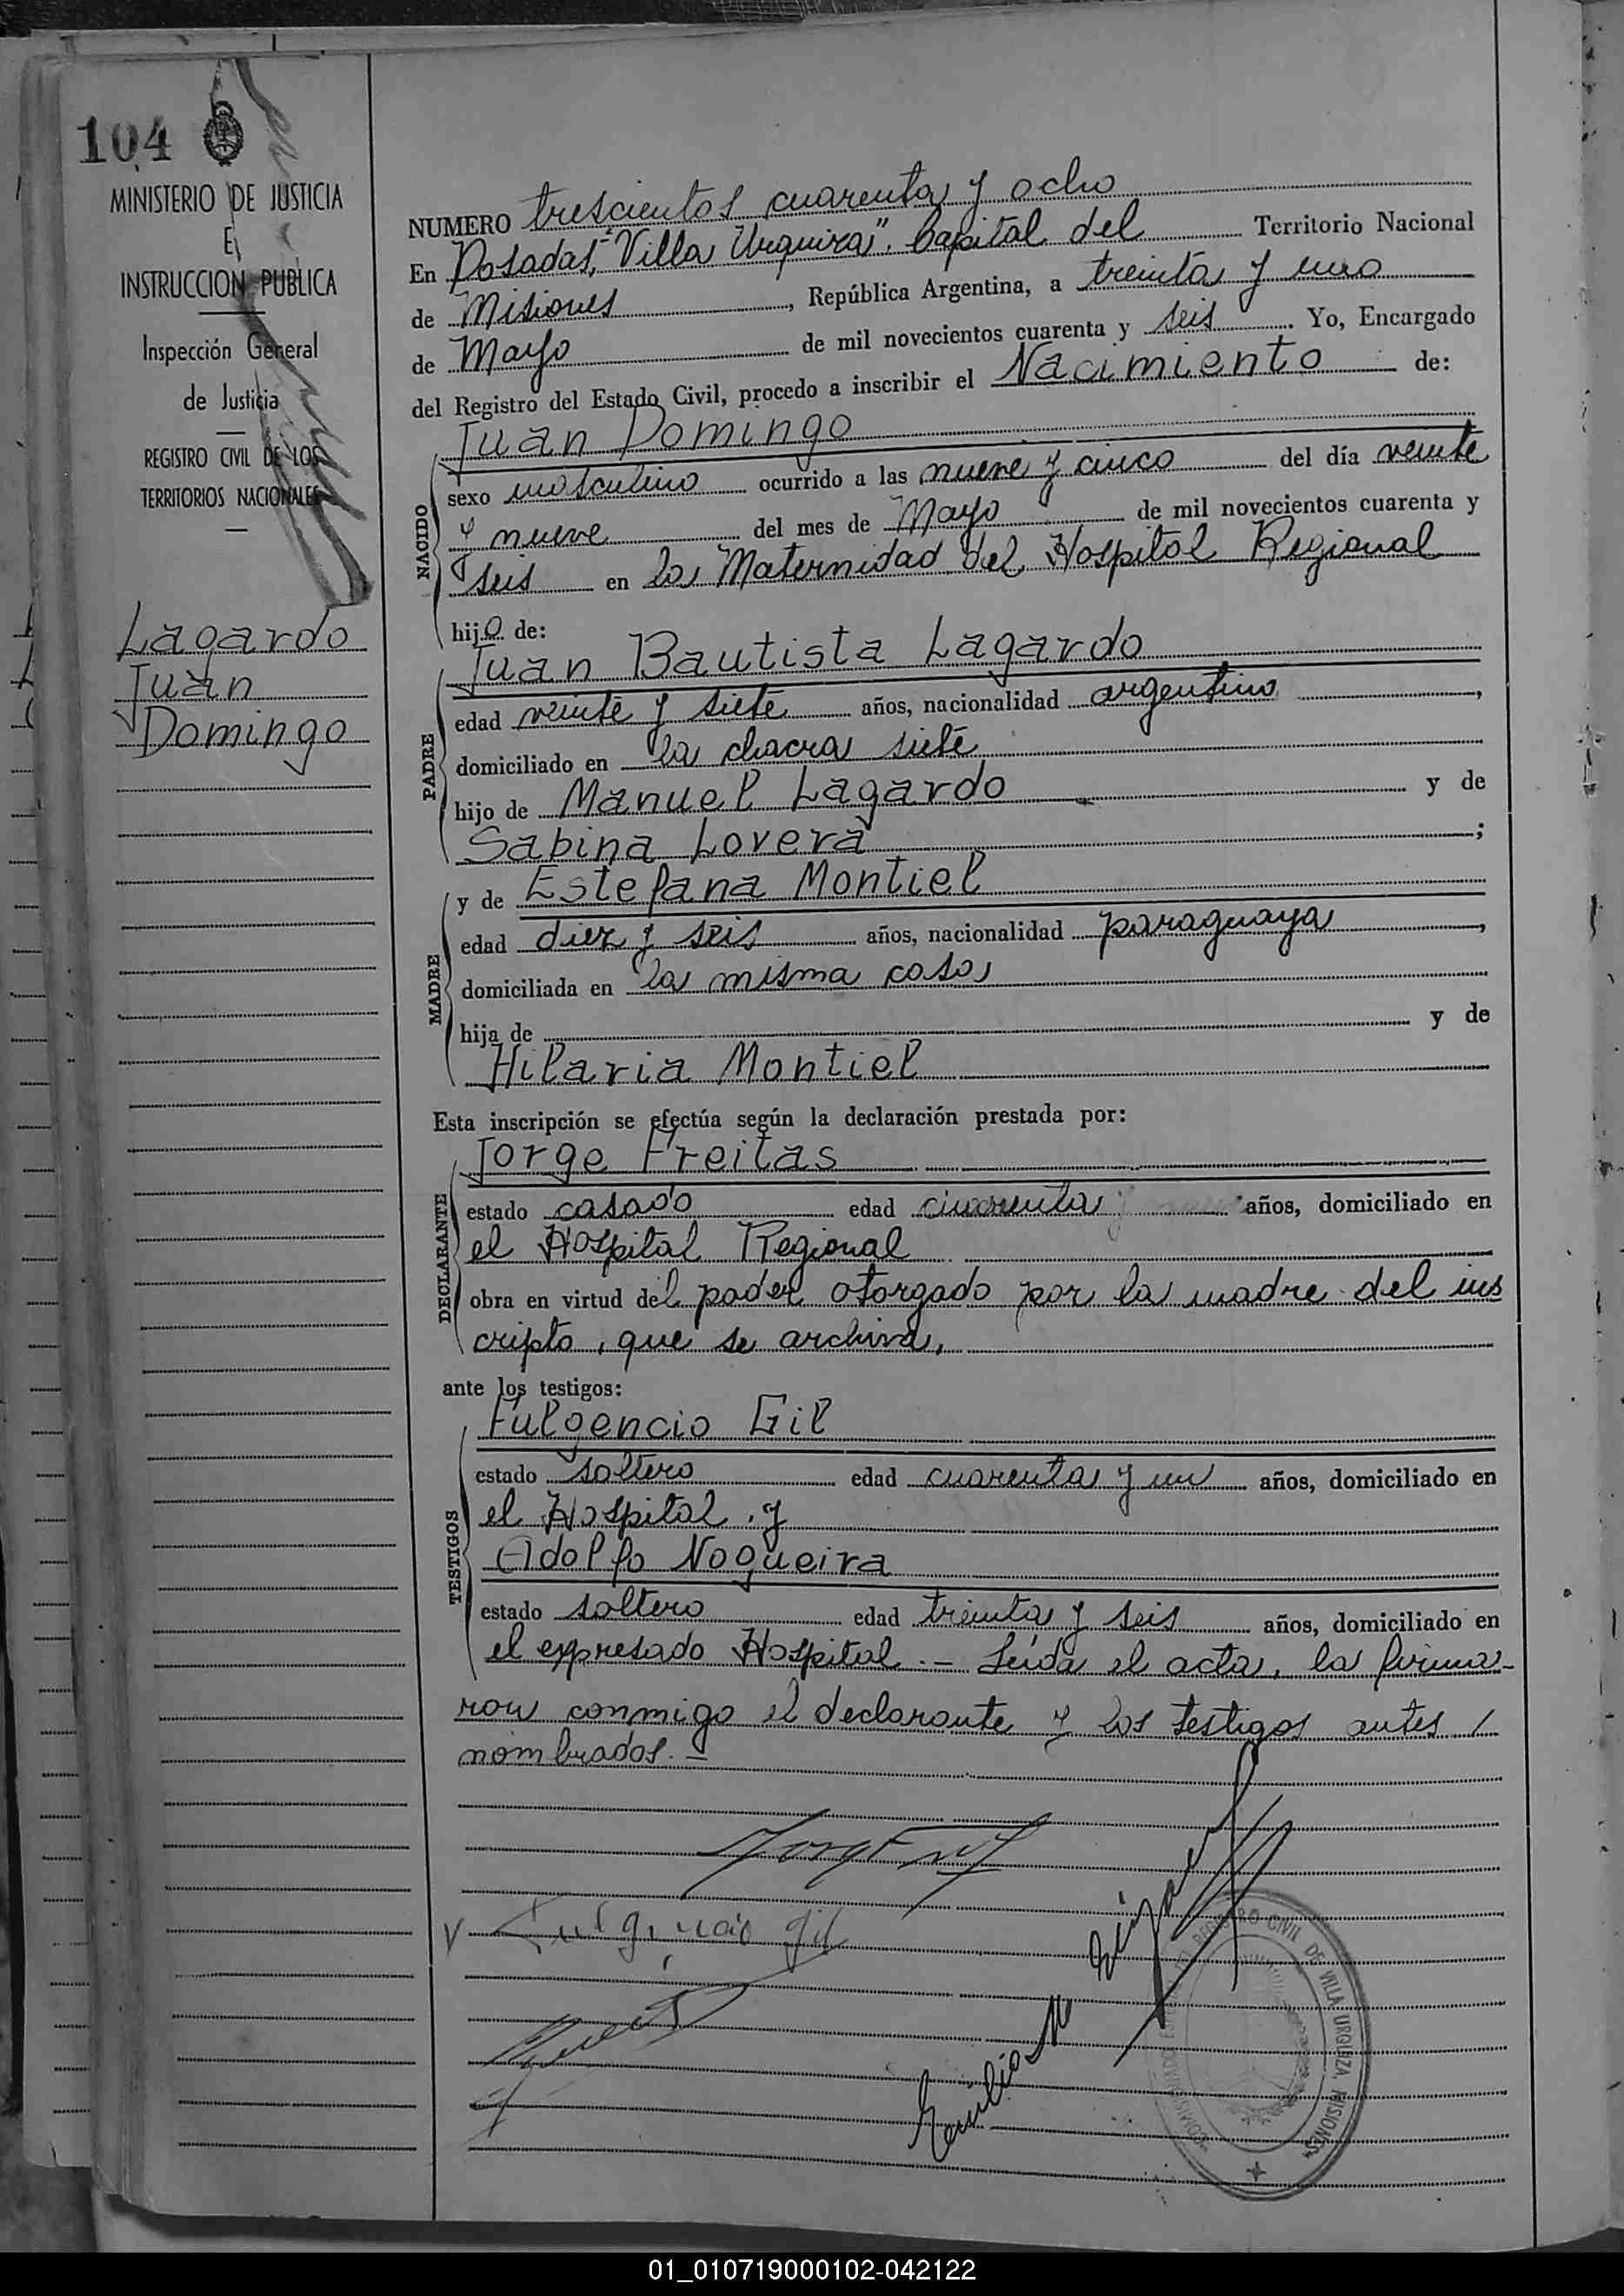 104
MINISTERIO DE JUSTICIA
E
INSTRUCCION PUBLICA
Inspección General
de Justicia
REGISTRO CIVIL DE LOS
TERRITORIOS NACIONALES
Lagardo
Juan
Domingo
NUMERO trescientos cuarenta y ocho
En Posadas, "Villa Urquiza". Capital del Territorio Nacional
de Misiones, República Argentina, a treinta y uno
de Mayo de mil novecientos cuarenta y seis. Yo, Encargado
del Registro del Estado Civil, procedo a inscribir el Nacimiento de:
NACIDO
Juan Domingo
sexo masculino ocurrido a las nueve y cinco del día veinte
y nueve del mes de Mayo de mil novecientos cuarenta y
seis en la Maternidad del Hospital Regional
hijo de:
PADRE
Juan Bautista Lagardo
edad veinte y siete años, nacionalidad argentino,
domiciliado en la chacra siete
hijo de Manuel Lagardo y de
Sabina Lovera;
MADRE
y de Estefana Montiel
edad diez y seis años, nacionalidad paraguaya,
domiciliada en la misma casa
hija de y de
Hilaria Montiel
Esta inscripción se efectúa según la declaración prestada por:
DECLARANTE
Jorge Freitas
estado casado edad cincuenta años, domiciliado en
el Hospital Regional
obra en virtud del poder otorgado por la madre del ins
cripto, que se archiva,
ante los testigos:
TESTIGOS
Fulgencio Gil
estado soltero edad cuarenta y un años, domiciliado en
el Hospital, y
Adolfo Nogueira
estado soltero edad treinta y seis años, domiciliado en
el expresado Hospital.- Leída el acta, la firma-
ron conmigo el declarante y los testigos antes /
nombrados.-
Fulgencio Gil
Emilio
REGISTRO CIVIL DE VILLA URQUIZA, MISIONES
01_010719000102-042122